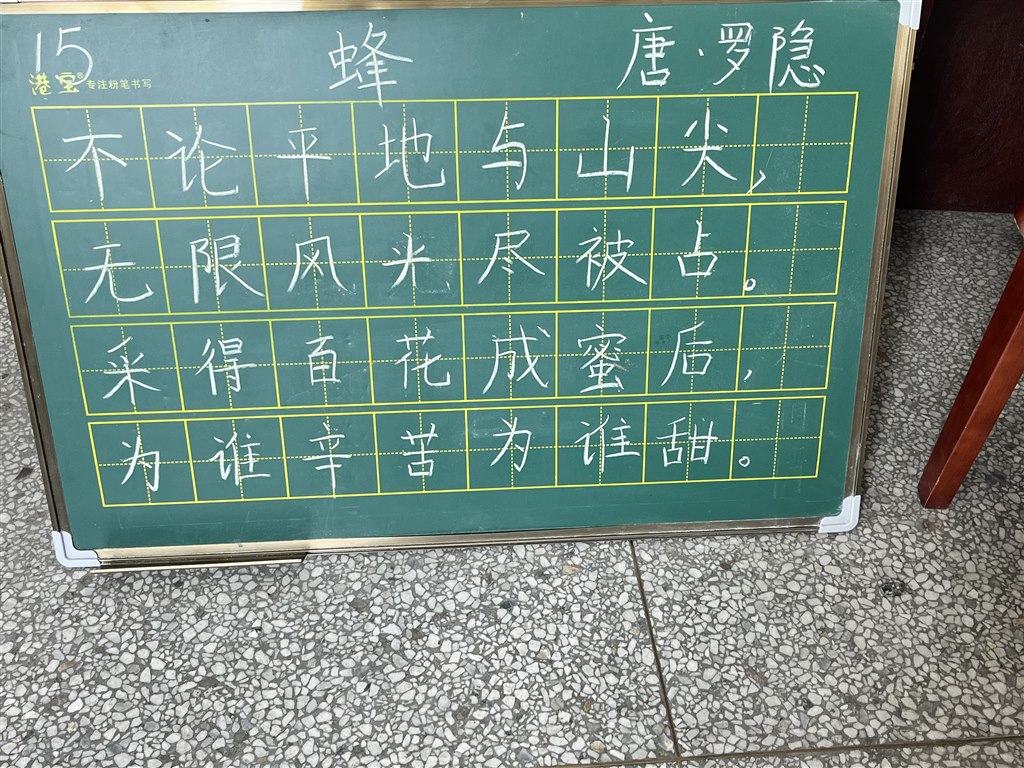 15 蜂 唐·罗隐
港宝® 专注粉笔书写
不论平地与山尖,
无限风光尽被占。
采得百花成蜜后,
为谁辛苦为谁甜。